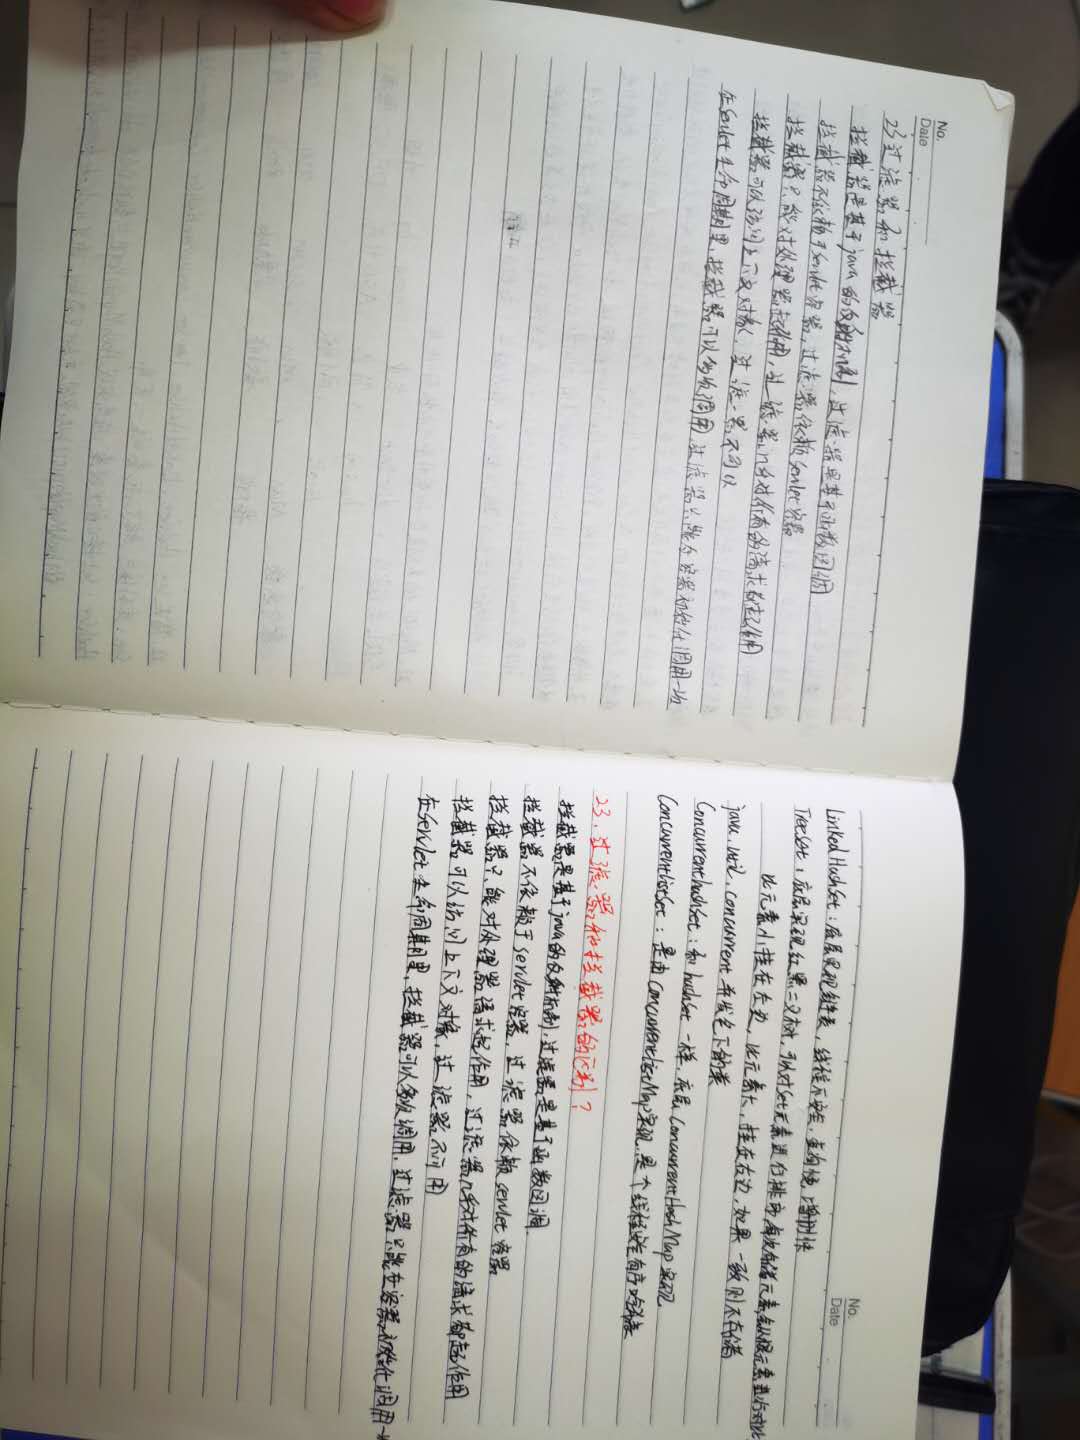 No.
Date
23 过滤器和拦截器
拦截器是基于java的反射机制,过滤器是基于函数回调
拦截器不依赖于servlet容器,过滤器依赖servlet容器
拦截器只能对处理器起作用,过滤器几乎对所有的请求都起作用
拦截器可以访问上下文对象,过滤器不可以
在Servlet生命周期里,拦截器可以多次调用,过滤器只能在容器初始化调用一次
No.
Date
LinkedHashSet:底层实现链表,线程不安全,查询慢,增删快
TreeSet:底层实现红黑二叉树,可以对Set元素进行排序,每次存储元素会从根元素进行对比
比元素小,挂在左边,比元素大,挂在右边,如果一致则不存储
java.util.concurrent并发包下的类
ConcurrenthashSet:和hashSet一样,底层ConcurrentHashMap实现
ConcurrentlistSet:是由ConcurrentlistMap实现,是个线程安全有序的
23、过滤器和拦截器的区别?
拦截器是基于java的反射机制,过滤器是基于函数回调.
拦截器不依赖于servlet容器,过滤器依赖servlet容器
拦截器只能对处理器请求起作用,过滤器几乎对所有的请求都起作用
拦截器可以访问上下文对象,过滤器不可用
在Servlet生命周期里,拦截器可以多次调用,过滤器只能在容器初始化调用一